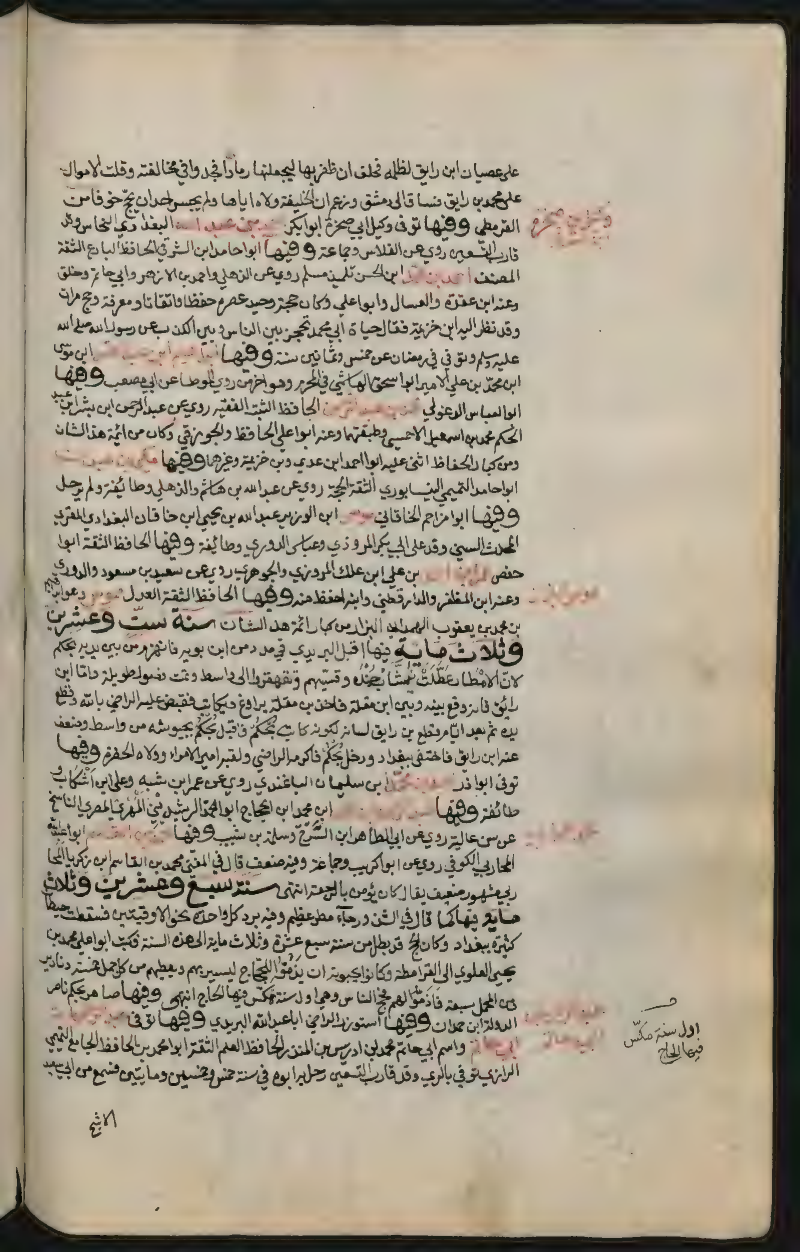 على عصيان ابن رايق لظلمه فحلف ان ظفر بها ليجعلنها رمادا فجدوا في مخالفته وقلت الاموال
على محمد بن رايق فسار الى دمشق وزعم ان الخليفة ولاه اياها ولم يجسر احد ان يحج خوفا من
القرمطي وفيها توفي وكيل ابي صخرة ابو ابكر احمد بن عبد الله البغدادي النحاس وقد
قارب التسعين روى عن الفلاس وجماعة وفيها ابو حامد ابن الشرقي الحافظ البارع الثقة
المصنف احمد بن محمد ابن الحسن تلميذ مسلم روى عن الذهلي واحمد بن الازهر وابي حاتم وخلق
وعنه ابن عقدة والعسال وابو اعلي وكان حجة وحيد عصره حفظا واتقانا ومعرفة وحج مرات
وقد نظر اليه ابن خزيمة فقال حياة ابي محمد تحجز بين الناس وبين الكذب عن رسول الله صلى الله
عليه وسلم وتوفي في رمضان عن خمس وثمانين سنة وفيها ابراهيم ابن عبد الصمد ابن موسى
ابن محمد بن علي الامير ابو اسحق الهاشمي في المحرم وهو اخر من روى الموطا عن ابي مصعب وفيها
ابو العباس الدغولي محمد بن عبد الرحمن الحافظ الثبت الفقيه روى عن عبد الرحمن ابن بشر ابن عبد
الحكم محمد بن اسمعيل الاحمسي وطبقتهما وعنه ابو اعلي الحافظ والجوزقي وكان من ائمة هذا الشان
ومن كبار الحفاظ اثنى عليه ابو احمد ابن عدي وبن خزيمة وغيرهما وفيها مكي بن عبدان
ابو احامد التميمي النيسابوري الثقة الحجة روى عن عبد الله بن هاشم والذهلي وطائفة ولم يرحل
وفيها ابو مزاحم الخاقاني موسى ابن الوزير عبد الله بن يحيى ابن خاقان البغدادي المقري
المحدث السني وقد على ابي بكر المروذي وعباس الدوري وطائفة وفيها الحافظ الثقة ابوا
حفص عمر ابن احمد بن علي ابن علك المروزي والجوهري روى عن سعيد بن مسعود والدوري
وعنه ابن المظفر والدارقطني وابنه احفظ منه وفيها الحافظ الثقة العدل
بن محمد بن يعقوب الهمداني البزار من كبار ائمة هذا الشان سنة ست وعشرين
وثلاث ماية فيها اقبل البريدي في مدد من ابن بويه فانهزم من بين يديه بجكم
لان الامطار عطلت نشاب جنده وقسيهم وتقهقروا الى واسط وتمت فصول طويلة واما ابن
رائق فانه وقع بينه وبين ابن مقلة فاخذ بن مقلة يراوغ ويكاتب فقبض عليه الراضي بالله وقطع
يده ثم بعد ايام قطع بن رايق لسانه لكونه كاتب بجكم فاقبل بجكم بجيوشه من واسط وضعف
عنه ابن رايق فاختفى ببغداد ودخل بجكم فاكرمه الراضي ولقبه امير الامراء وولاه الحضرة وفيها
توفي ابو اذر احمد بن محمد ابن سليمان الباغندي روى عن عمر ابن شبه وعلي ابن اشكاب و
طائفة وفيها عبد الرحمن بن احمد ابن محمد ابن الحجاج ابو محمد الرشيديني المهري المصري الناسخ
عن سن عالية روى عن ابي الطاهر ابن السرح وسلمة بن شبيب وفيها محمد بن القاسم ابو عبد الله
المحاربي الكوفي روى عن ابو اكريب وجماعة وفيه ضعف قال في المغني محمد بن القاسم ابن زكريا المحا
ربي مشهور ضعيف يقال كان يؤمن بالرجعة انتهى سنة سبع وعشرين وثلاث
ماية فيها كما قال في الشذور جاء مطر عظيم وفيه برد كل واحدة نحو الاوقيتين فسقطت حيطان
كثيرة ببغداد وكان الحج قد بطل من سنة سبع عشرة وثلاث ماية الى هذه السنة فكتب ابو اعلي محمد بن
يحيى العلوي الى القرامطة وكانوا يحبونه ان يذموا للحجاج ليسير بهم ويعطيهم من كل جمل خمسة دنانير
ومن المحمل سبعة فاذموا لهم فحج الناس وهي اول سنة مكس فيها الحاج انتهى وفيها صاهر بجكم ناصر
الدولة ابن حمدان وفيها استوزر الراضي ابا عبد الله البريدي وفيها توفي عبد الرحمن ابن
ابي حاتم واسم ابي حاتم محمد بن ادريس بن المنذر الحافظ العلم الثقة ابو محمد بن الحافظ الجامع التميمي
الرازي توفي بالري وقد قارب التسعين رحل به ابوه في سنة خمس وخمسين وماتيين فسمع من ابي سعيد
الاشج
وكيل ابي صخرة
اول سنة مكس
فيها الحاج